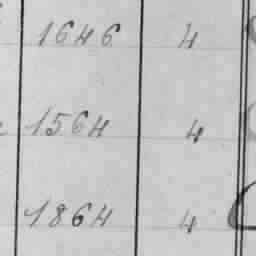 1646 4
1564 4
1864 4